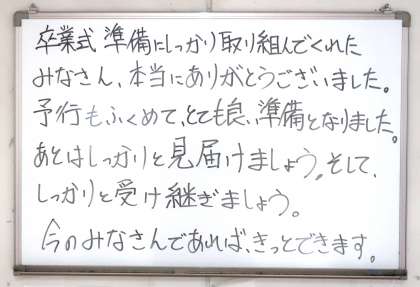 卒業式 準備にしっかり取り組んでくれた
みなさん、本当にありがとうございました。
予行もふくめて、とても良い準備となりました。
あとはしっかりと見届けましょう。そして、
しっかりと受け継ぎましょう。
今のみなさんであれば、きっとできます。